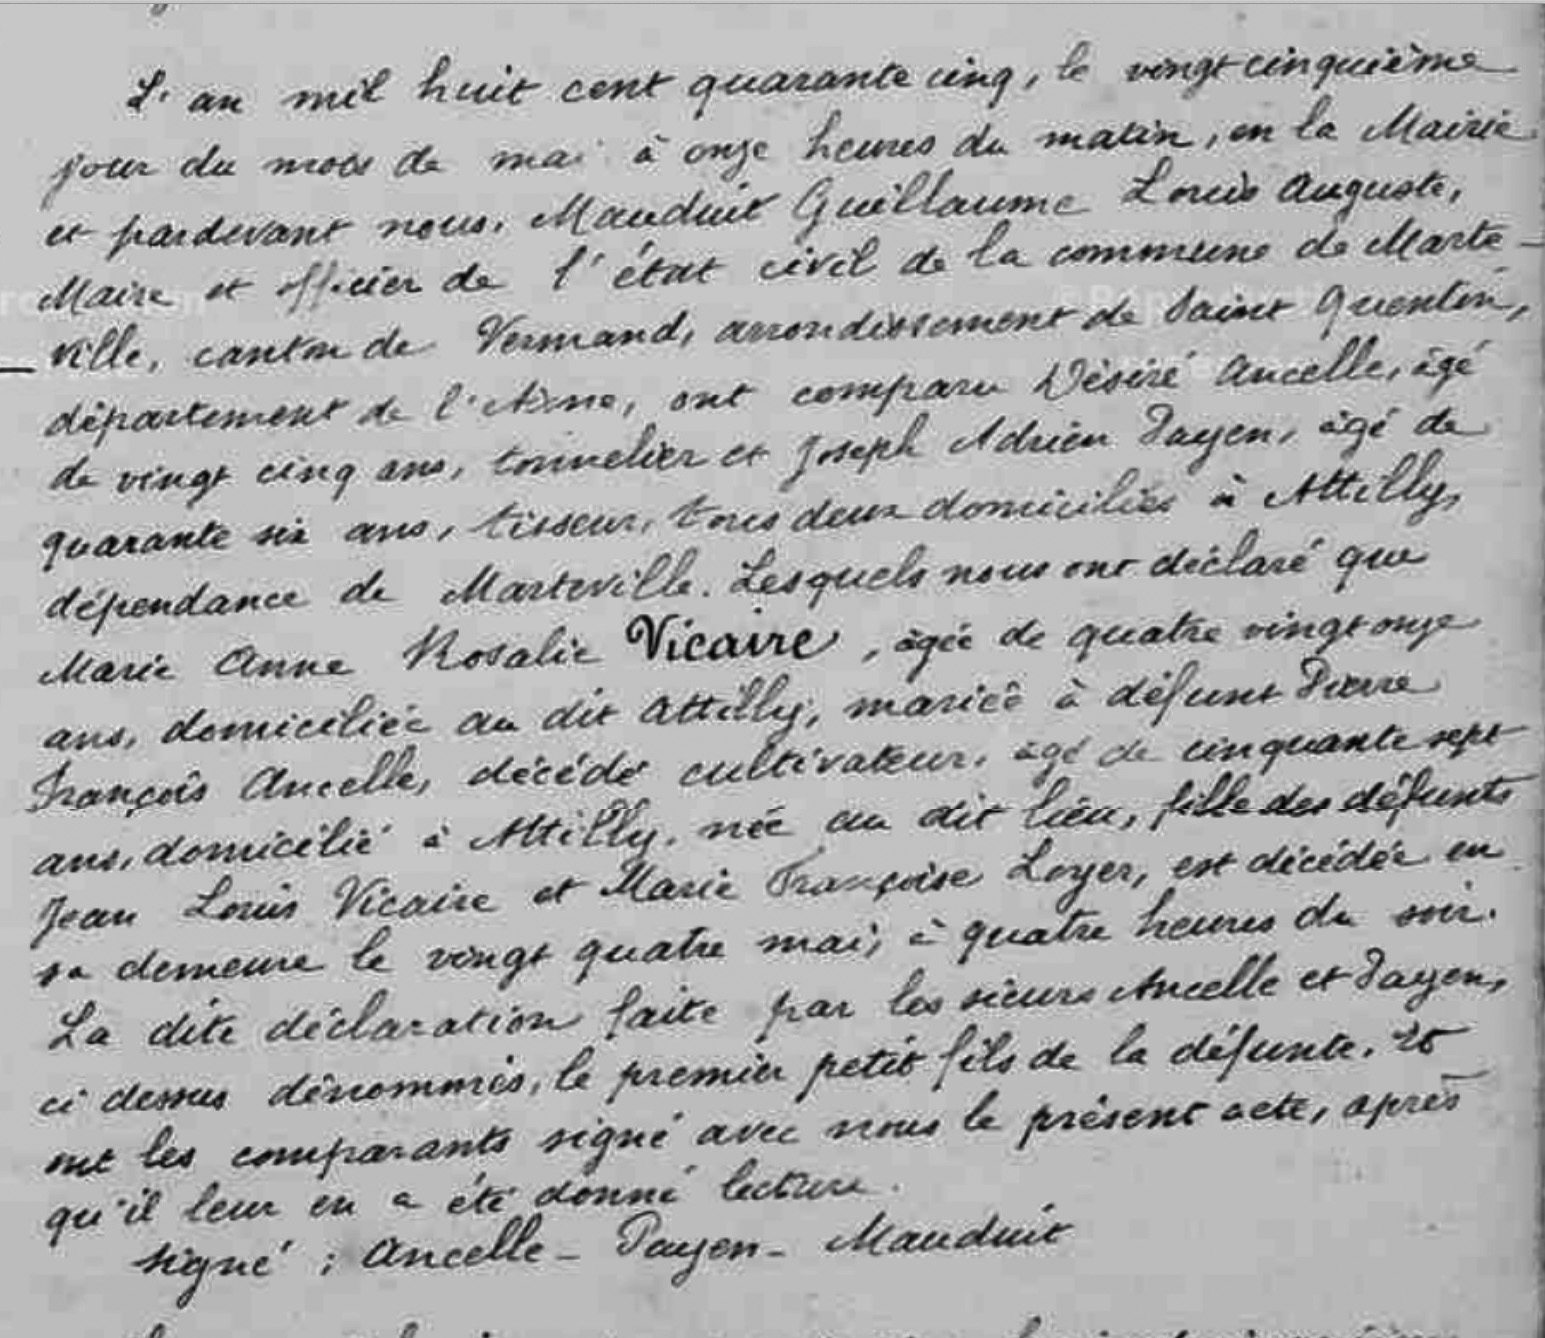 L'an mil huit cent quarante cinq, le vingt cinquième
jour du mois de mai à onze heures du matin, en la Mairie
et pardevant nous, Mauduit Guillaume Louis Auguste,
Maire et officier de l'état civil de la commune de Marte-
ville, canton de Vermand, arrondissement de Saint Quentin,
département de l'Aisne, ont comparu Désiré Ancelle, âgé
de vingt cinq ans, tonnelier et Joseph Adrien Payen, âgé de
quarante six ans, tisseur, tous deux domiciliés à Attilly,
dépendance de Marteville. Lesquels nous ont déclaré que
Marie Anne Rosalie Vicaire, âgée de quatre vingt onze
ans, domiciliée au dit Attilly, mariée à défunt Pierre
François Ancelle, décédé cultivateur, âgé de cinquante sept
ans, domicilié à Attilly, née au dit lieu, fille des défunts
Jean Louis Vicaire et Marie Françoise Loyer, est décédée en
sa demeure le vingt quatre mai, à quatre heures du soir.
La dite déclaration faite par les sieurs Ancelle et Payen,
ci dessus dénommés, le premier petit fils de la défunte. Et
ont les comparants signé avec nous le présent acte, après
qu'il leur en a été donné lecture.
signé : Ancelle - Payen - Mauduit